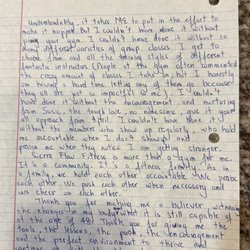 Understandably, it takes ME to put in the effort to
make it happen. But I couldn't have done it without
your gym. I couldn't have done it without so
many different varieties of group classes I get to
choose from and all the training styles of different
fantastic instructors. (People at the gym often commented
the crazy amount of classes I take on, but I honestly
am having a hard time letting any of them go because
they all are just so impactful to me). I couldn't
have done it without the encouragement and nurturing
from Susie, the tough love, no nonsense, give it your
all approach from April. I couldn't have done it
without the members who show up regularly, who hold
me accountable when I don't should and
praise me when they notice I am getting stronger.
Sierra Flow Fitness is more than a gym for me.
It's a community. It's a fitness family. As in
a family, we hold each other accountable. We praise
each other. We push each other when necessary and
we cheer on each other.
Thank you for making me a believer witnessing
the changes in my body what it is still capable of
at the age of. Thank you for giving me the
tools, the lessons, the props, the encouragement
and the perfect environment to thrive